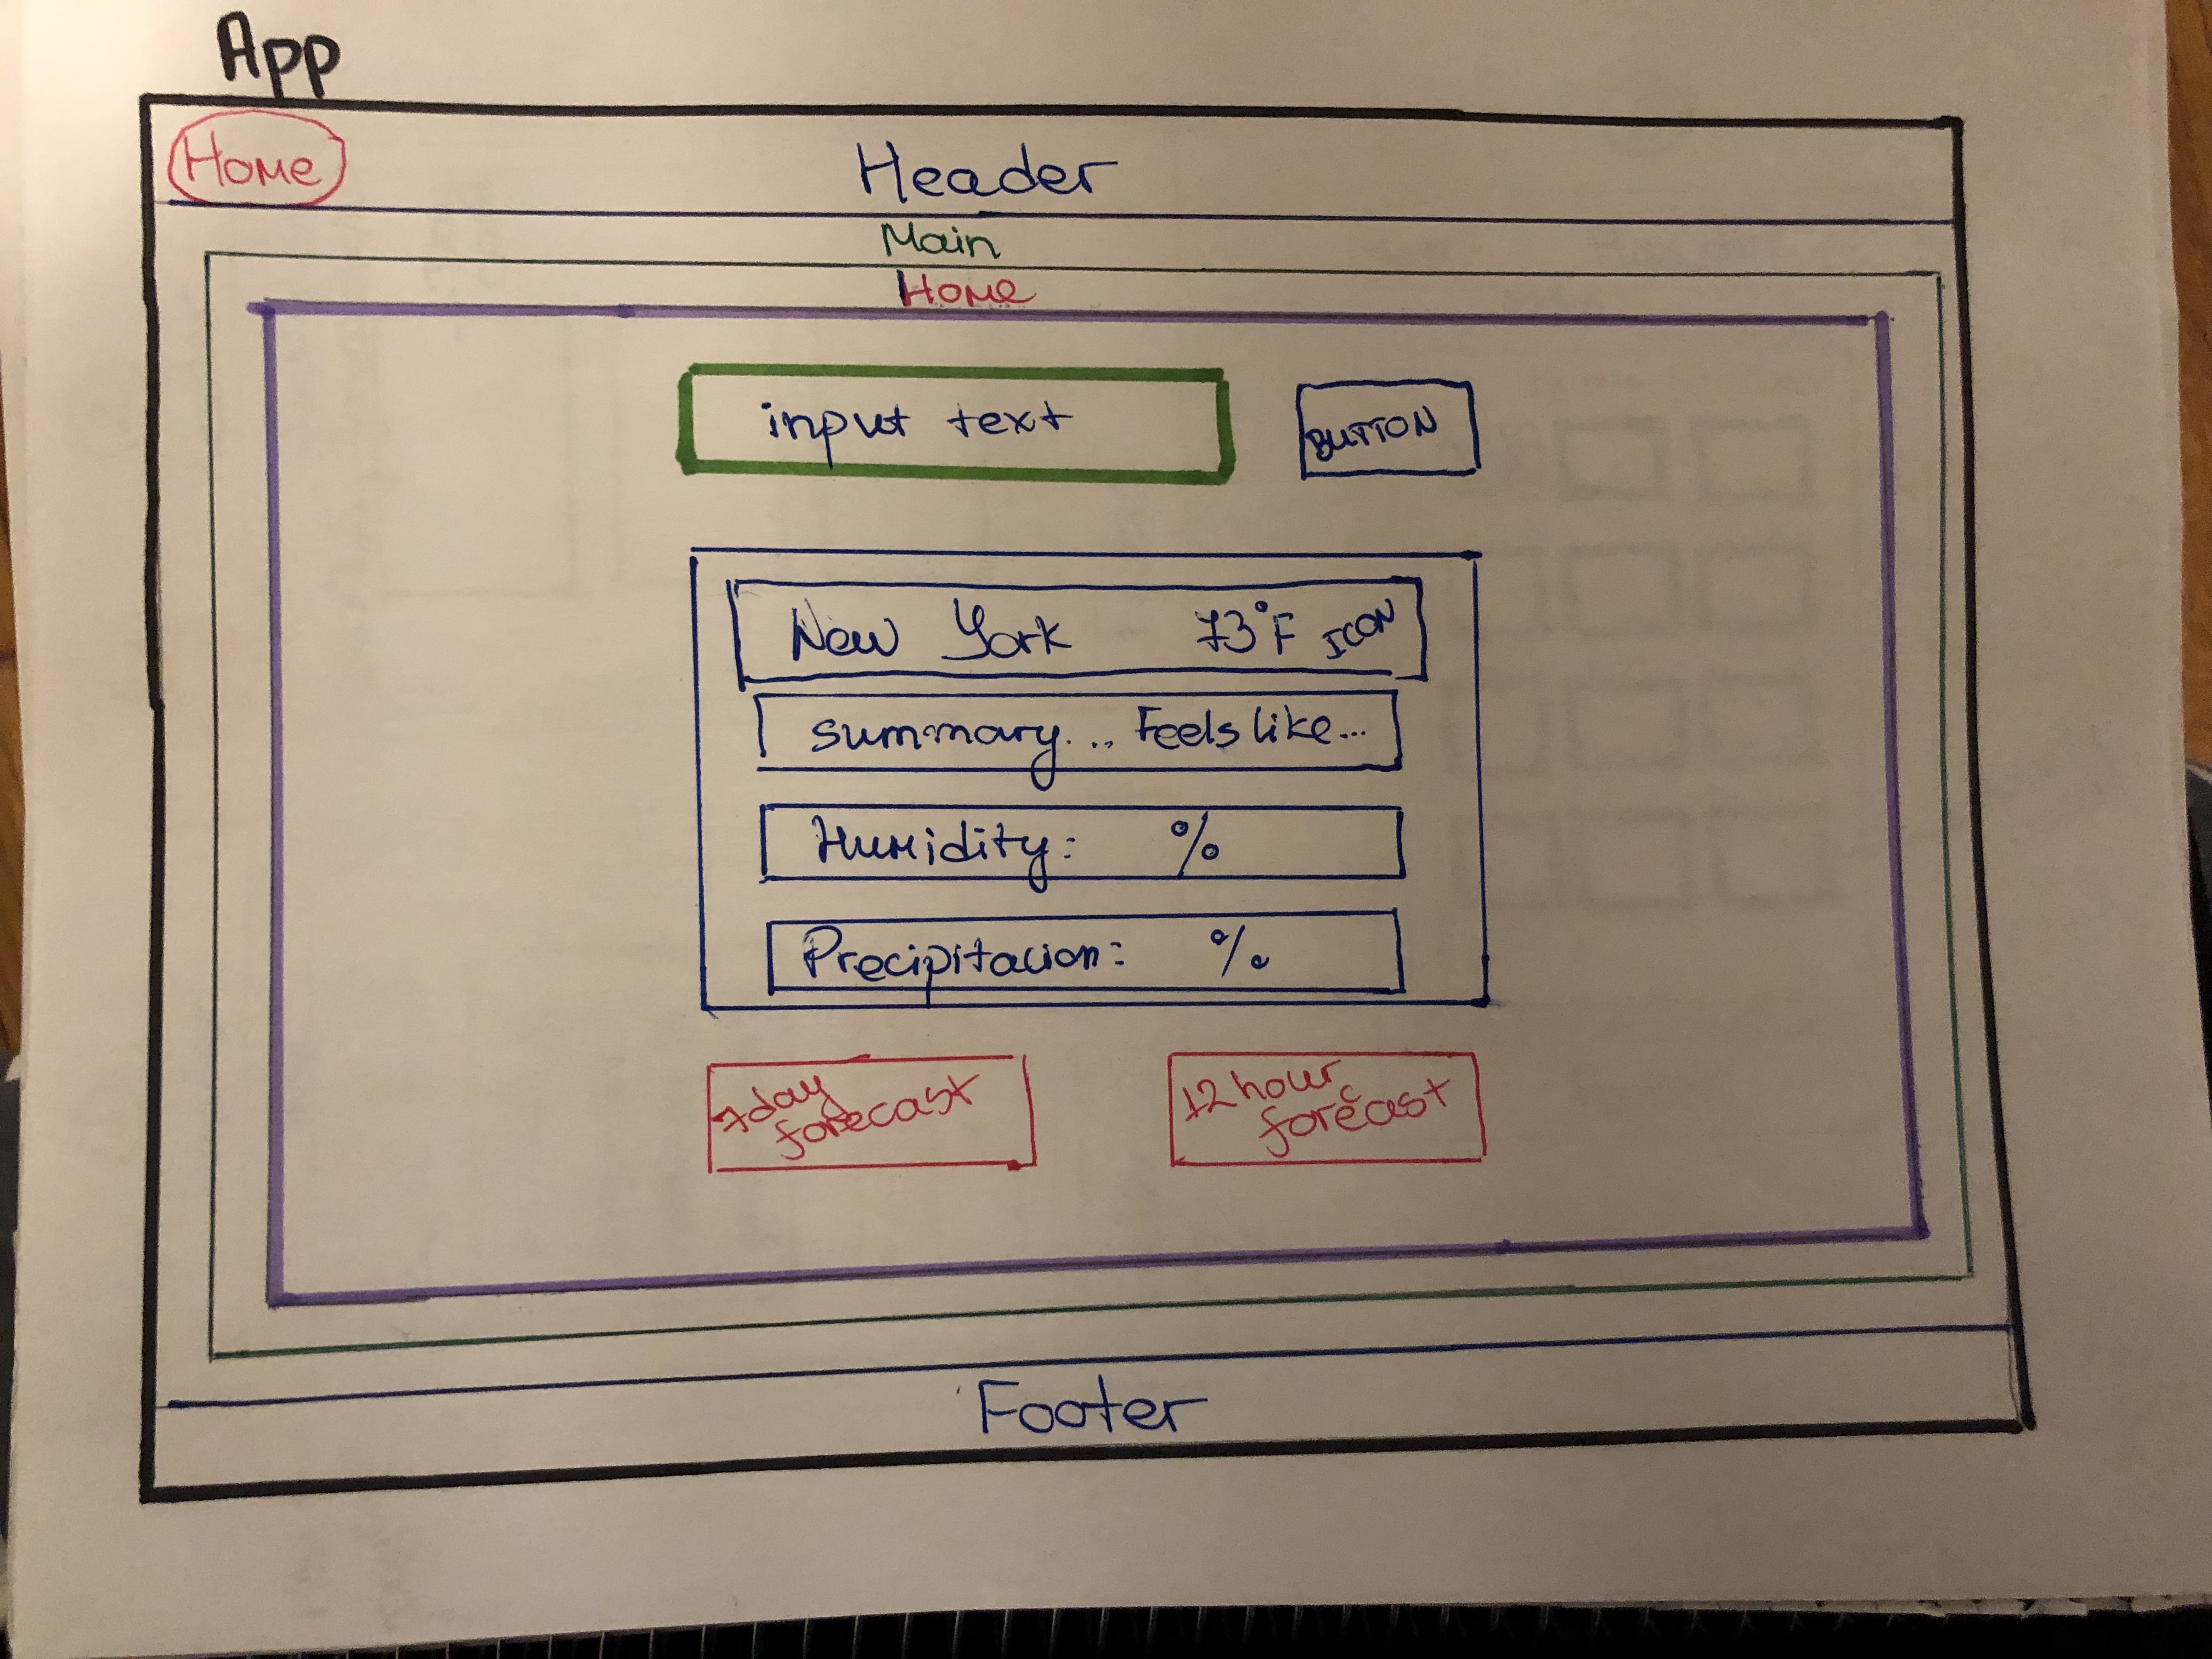 App
Home Header
Main
Home
input text BUTTON
New York 73°F ICON
summary... Feels like...
Humidity: %
Precipitacion: %
7day forecast
12 hour forecast
Footer